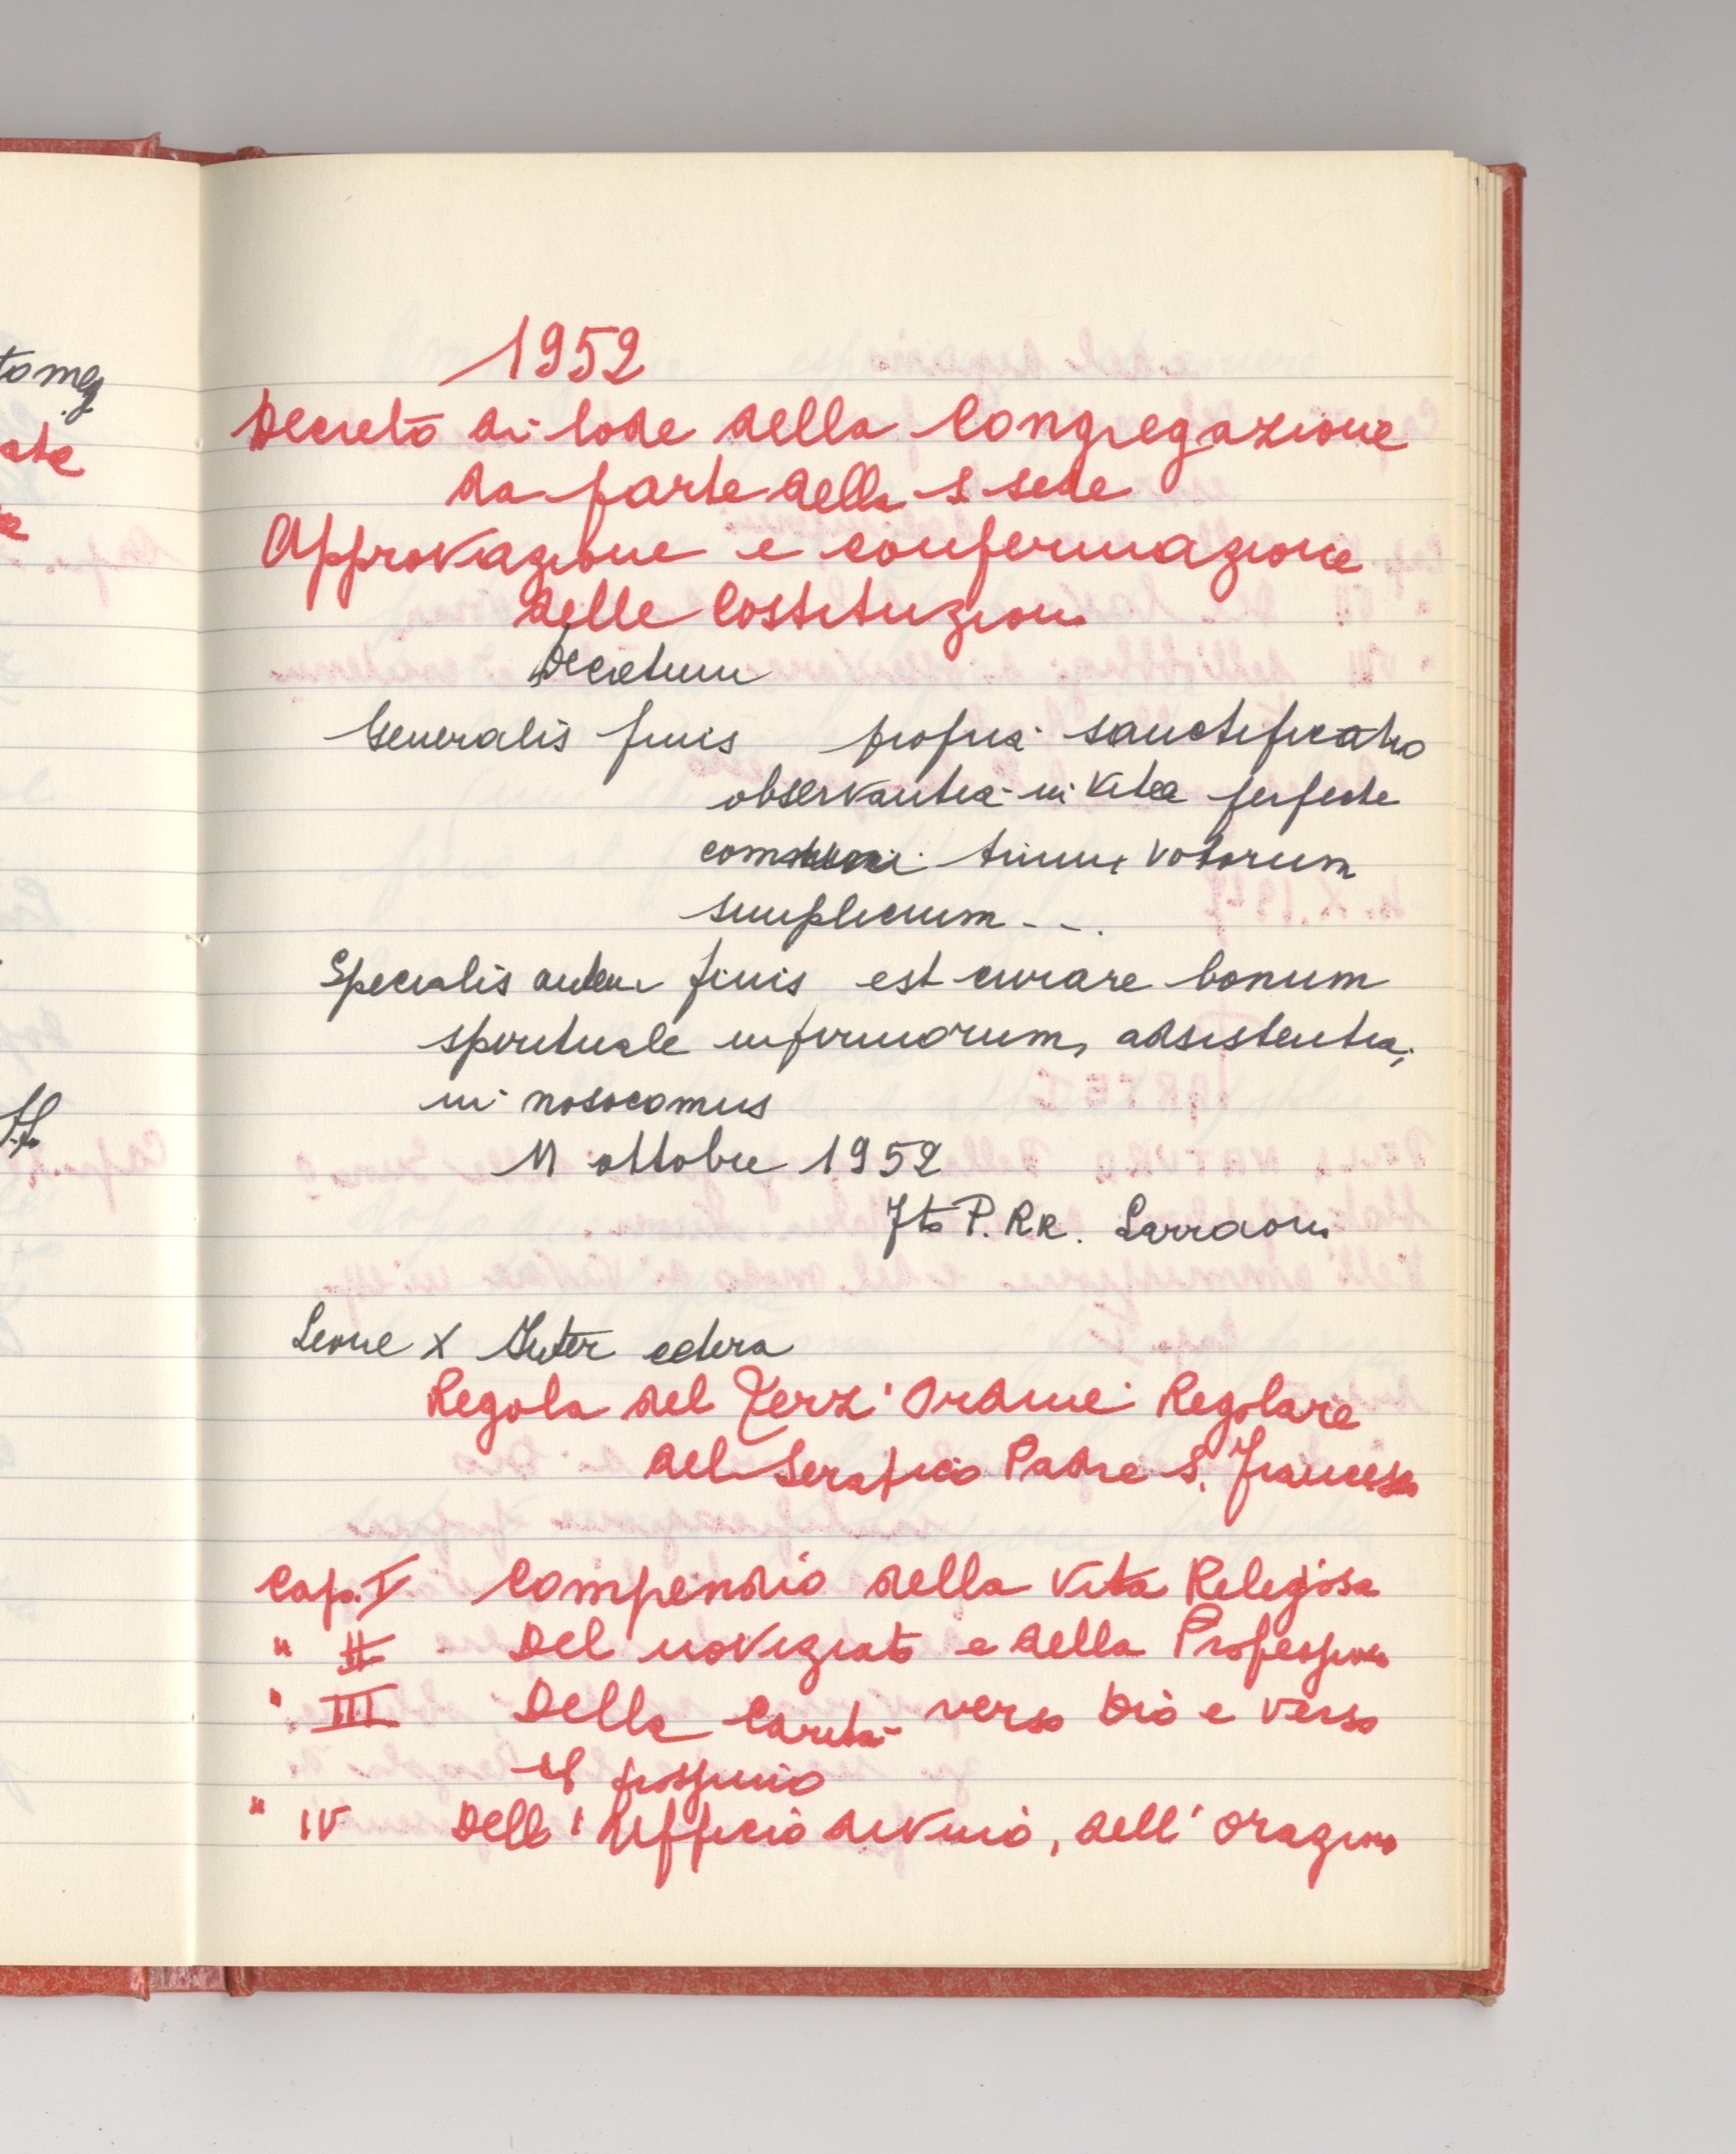 1952
Decreto di lode della Congregazione
da parte della S. Sede
Approvazione e confermazione
delle Costituzioni
Decretum
Generalis finis propria sanctificatio
observantia in vitae perfecte
trium votorum
simplicium - - .
Specialis autem finis est curare bonum
spirituale infirmorum, adsistentia,
in nosocomiis
11 ottobre 1952
P. RR. Larraoni
Leone X Inter cetera
Regola del Terz'Ordine Regolare
del Serafico Padre S. Francesco
Cap. I Compendio della Vita Religiosa
" II Del noviziato e della Professione
" III Della Carità verso Dio e verso
il prossimo
" IV Dell'Ufficio divino, dell'orazione